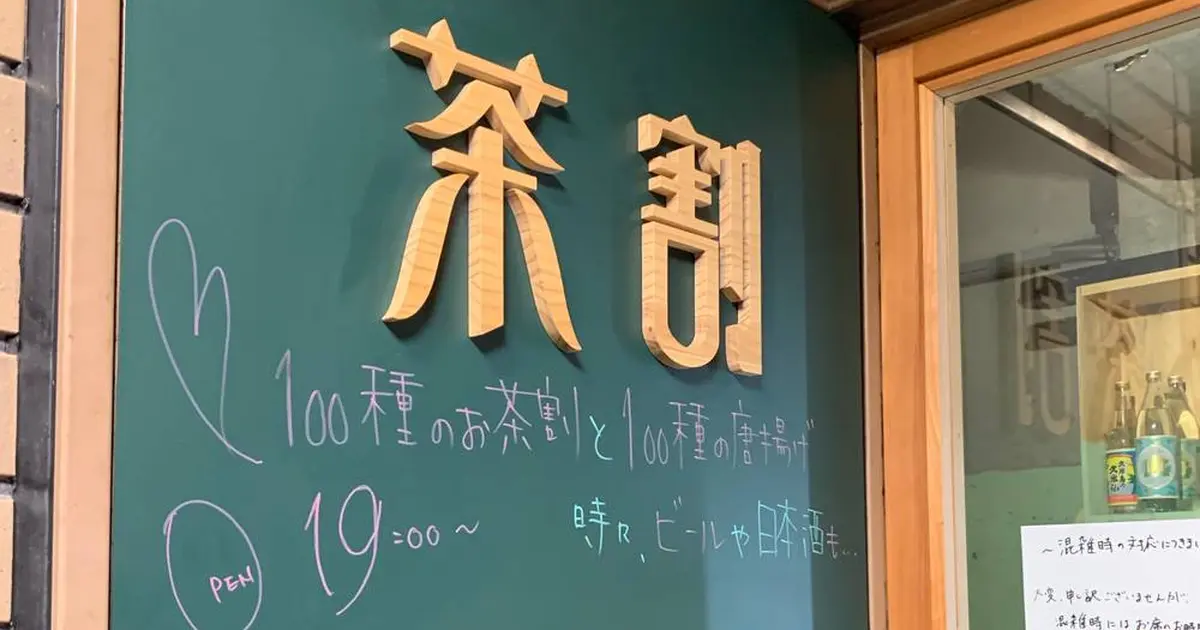 茶割
100種のお茶割りと100種の唐揚げ
OPEN 19:00～
時々、ビールや日本酒も...
～混雑時の対応につきまし
大変、申し訳ございませんが、
混雑時にはお席のお時